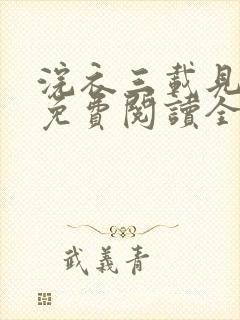 浣衣三載見
免費閱讀全
武義青